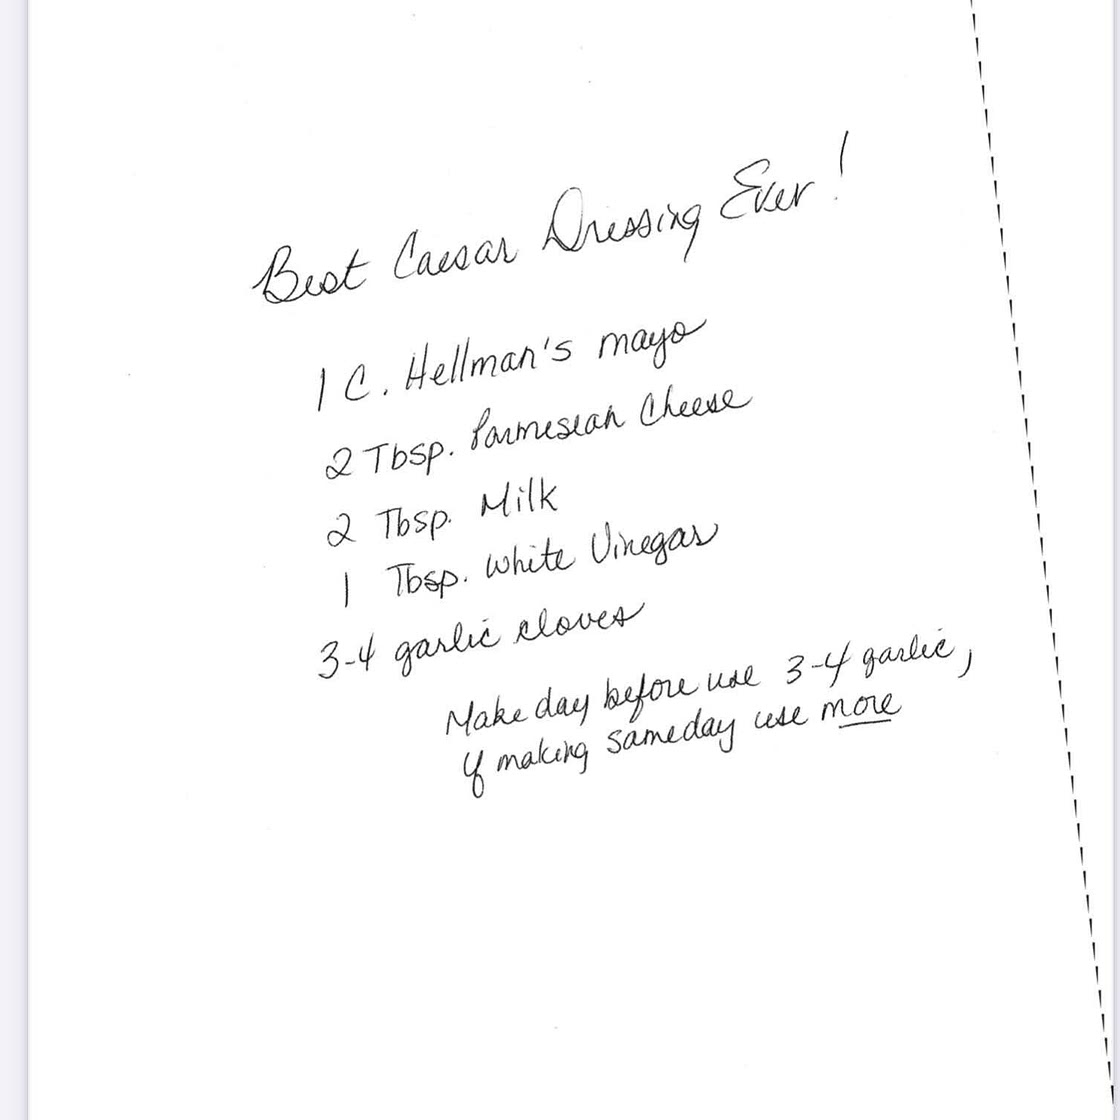 Best Caesar Dressing Ever!
1 C. Hellman's mayo
2 Tbsp. Parmesean Cheese
2 Tbsp. Milk
1 Tbsp. White Vinegar
3-4 garlic cloves
Make day before use 3-4 garlic,
If making sameday use more